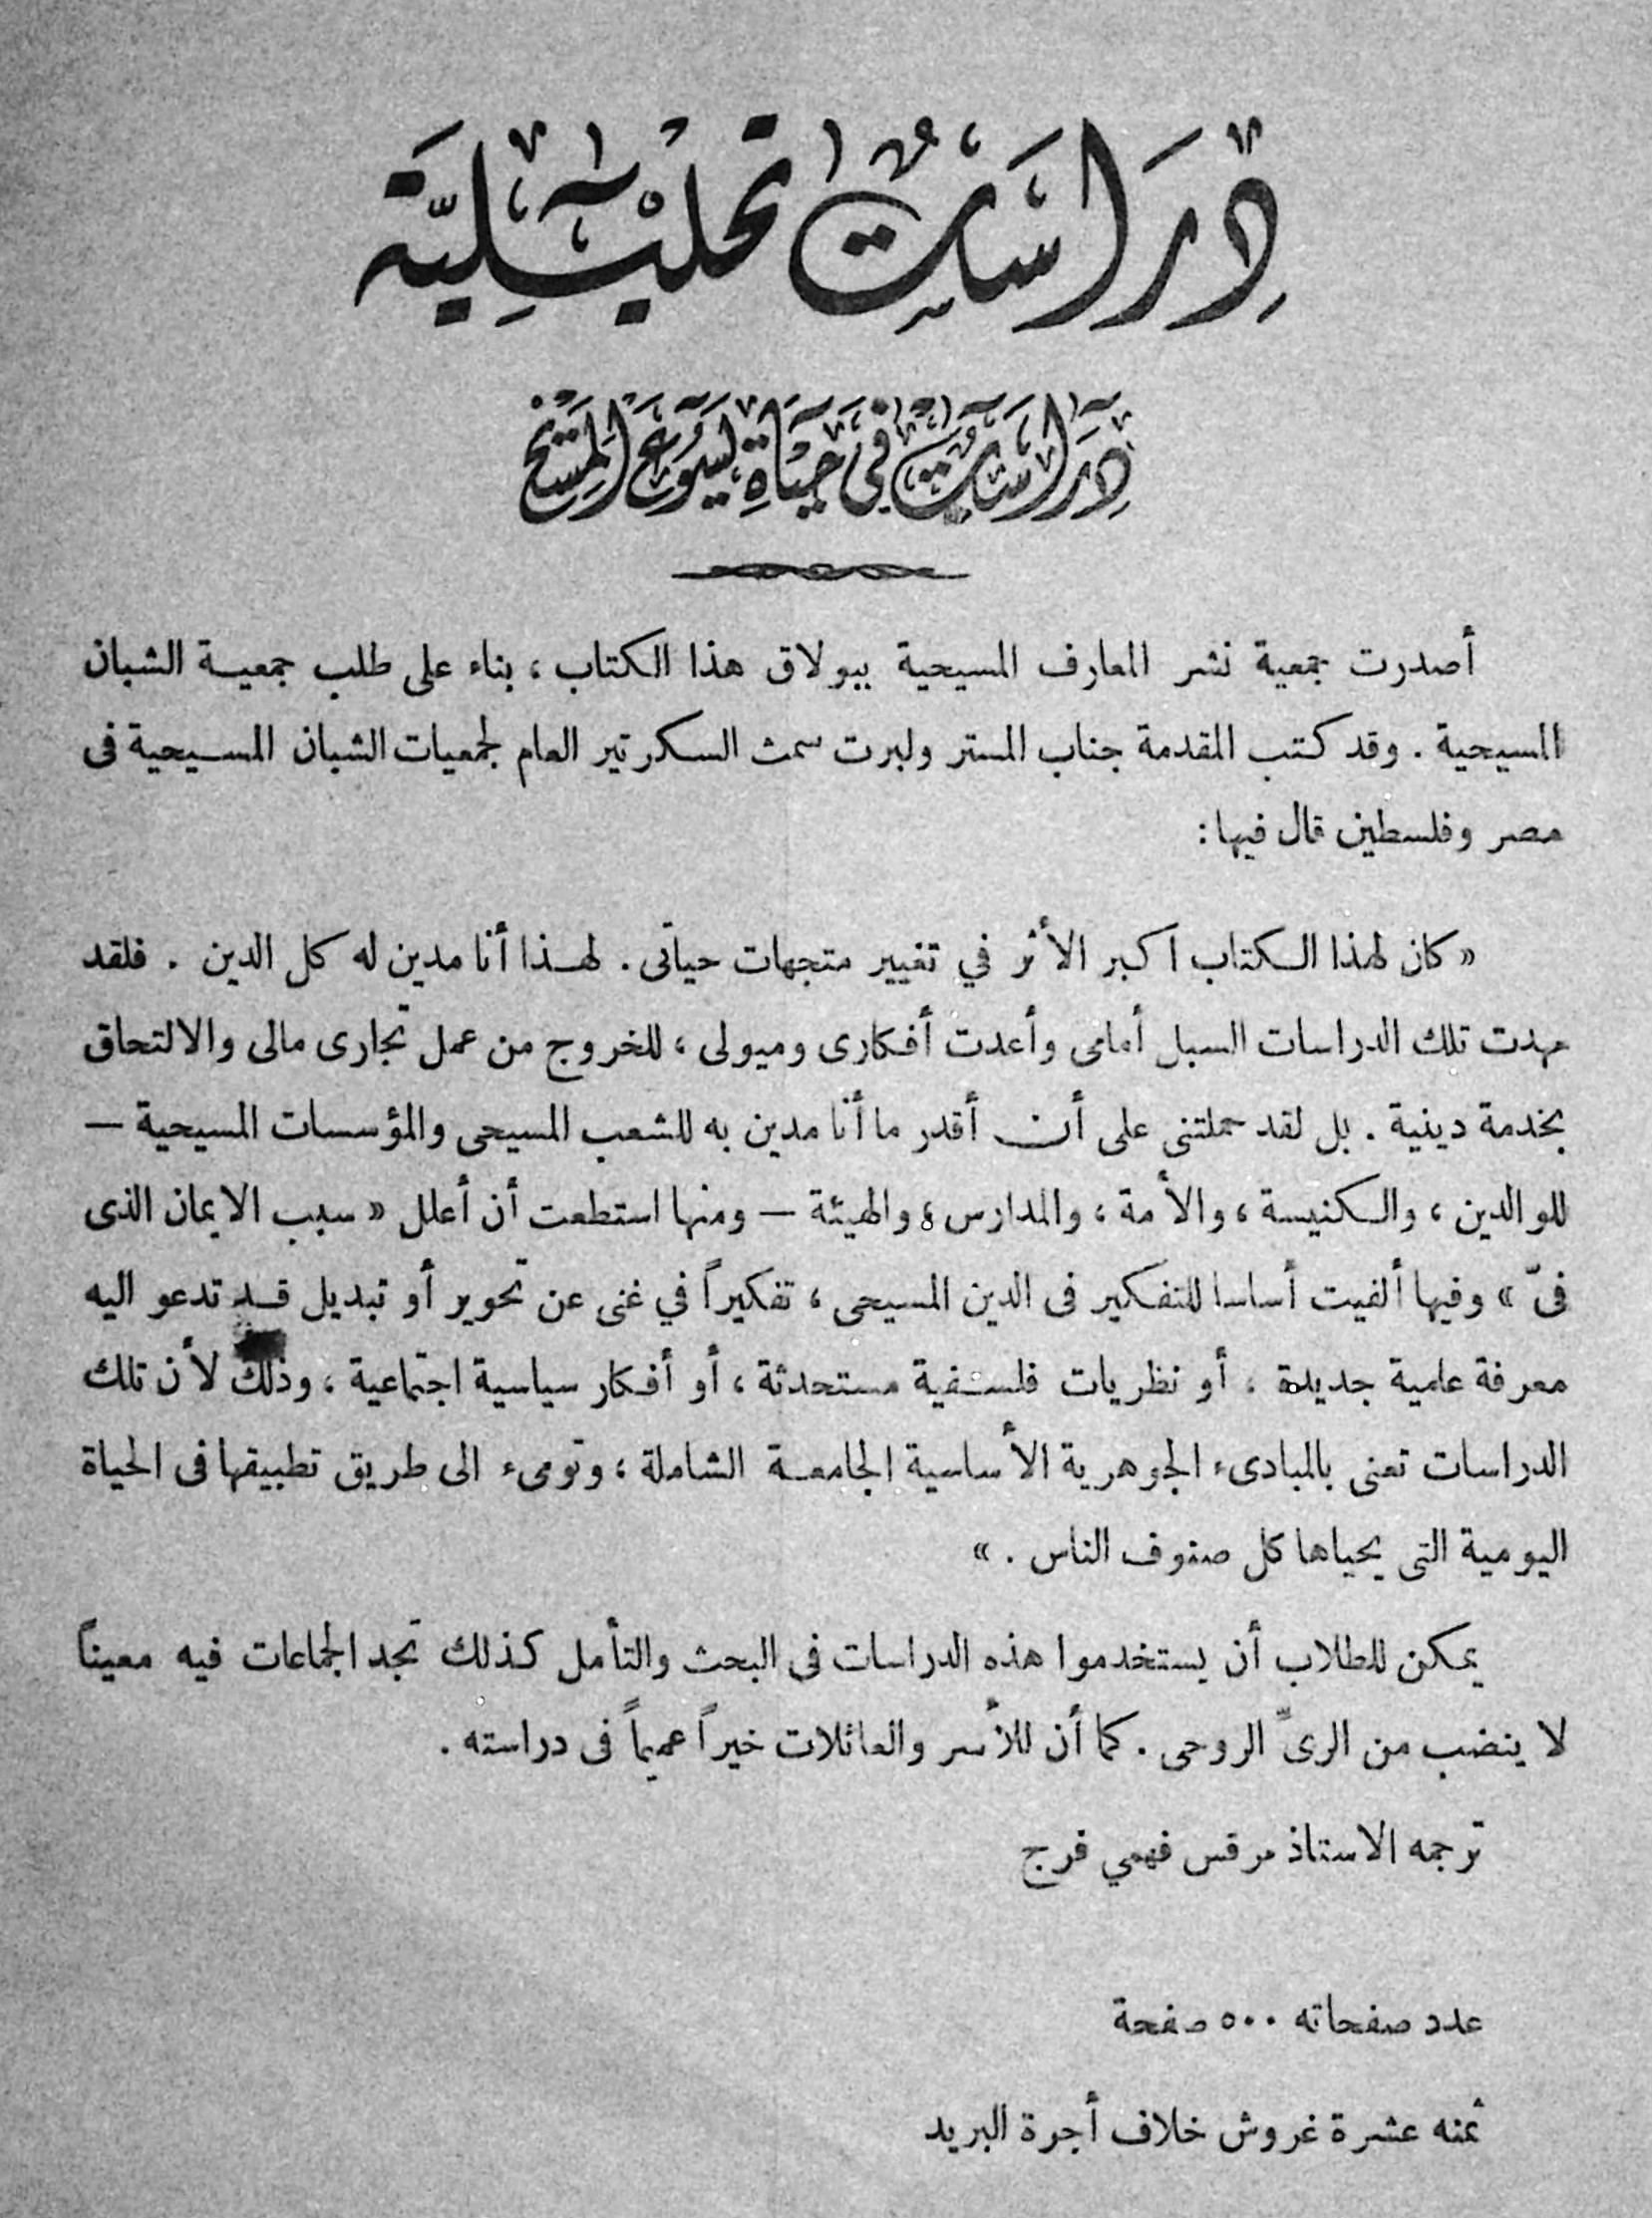 دراسات تحليلية
دراسات في حياة يسوع المسيح
أصدرت جمعية نشر المعارف المسيحية ببولاق هذا الكتاب ، بناء على طلب جمعية الشبان
المسيحية . وقد كتب المقدمة جناب المستر ولبرت سمث السكرتير العام لجمعيات الشبان المسيحية فى
مصر وفلسطين قال فيها :
« كان لهذا الكتاب اكبر الأثر في تغيير متجهات حياتى . لهذا أنا مدين له كل الدين . فلقد
مهدت تلك الدراسات السبل أمامى وأعدت أفكارى وميولى ، للخروج من عمل تجارى مالى والالتحاق
بخدمة دينية . بل لقد حملتنى على أن أقدر ما أنا مدين به للشعب المسيحى والمؤسسات المسيحية —
للوالدين ، والكنيسة ، والأمة ، والمدارس ، والهيئة — ومنها استطعت أن أعلل « سبب الايمان الذى
فىّ » وفيها ألفيت أساسا للتفكير فى الدين المسيحى ، تفكيراً في غنى عن تحوير أو تبديل قد تدعو اليه
معرفة علمية جديدة ، أو نظريات فلسفية مستحدثة ، أو أفكار سياسية اجتماعية ، وذلك لأن تلك
الدراسات تعنى بالمبادىء الجوهرية الأساسية الجامعة الشاملة ، وتومىء الى طريق تطبيقها فى الحياة
اليومية التى يحياها كل صنوف الناس . »
يمكن للطلاب أن يستخدموا هذه الدراسات فى البحث والتأمل كذلك تجد الجماعات فيه معيناً
لا ينضب من الرىّ الروحى . كما أن للأسر والعائلات خيراً عميماً فى دراسته .
ترجمه الاستاذ مرقس فهمي فرج
عدد صفحاته ٥٠٠ صفحة
ثمنه عشرة غروش خلاف أجرة البريد